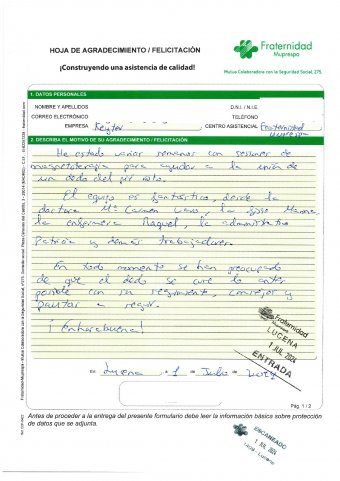 HOJA DE AGRADECIMIENTO / FELICITACIÓN
¡Construyendo una asistencia de calidad!
Fraternidad
Muprespa
Mutua Colaboradora con la Seguridad Social, 275
1. DATOS PERSONALES
NOMBRE Y APELLIDOS D.N.I. / N.I.E
CORREO ELECTRÓNICO TELÉFONO
EMPRESA Keyter CENTRO ASISTENCIAL Fraternidad
Muprespa
2. DESCRIBA EL MOTIVO DE SU AGRADECIMIENTO / FELICITACIÓN
He estado varias semanas con sesiones de
magnetoterapia para ayudar a la unión de
un dedo del pie roto.
El equipo es fantástico, desde la
doctora Mª Carmen la fisio
la enfermera Raquel, la administrativa
Patricia y demás trabajadores.
En todo momento se han preocupado
de que el dedo se cure lo antes
posible con su seguimiento, consejos y
pautas a seguir.
¡Enhorabuena!
Fraternidad
Muprespa
LUCENA
1 JUL. 2024
ENTRADA
En Lucena a 1 de Julio de 2024
Pág. 1 / 2
Antes de proceder a la entrega del presente formulario debe leer la información básica sobre protección
de datos que se adjunta.
ESCANEADO
1 JUL. 2024
Lucena